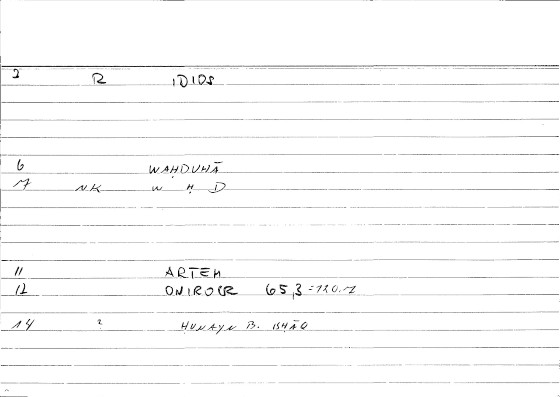 2 R IDIOS
6 WAḤDUHĀ
7 NK W Ḥ D
11 ARTEM
12 ONIROCR 65,3 = 120.7
14 ? ḤUNAYN B. ISḤĀQ